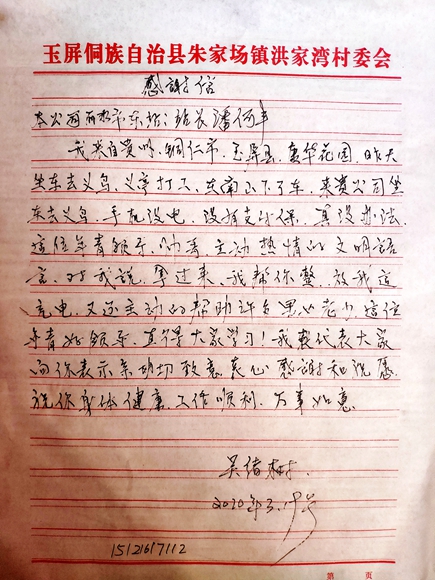 玉屏侗族自治县朱家场镇洪家湾村委会
感谢信
本公司丽水市东站：站长潘何丰
我来自贵州、铜仁市、玉屏县、嘉华花园，昨天
坐车去义乌、义亭打工、东南山下了车，来贵公司坐
车去义乌，手机没电，没有支付保，真没办法，
这位年青领导，帅哥，主动热情的文明语
言，对我说，拿过来，我帮你整，放我这
充电，又还主动的帮助许多男女老少，这位
年青好领导，真得大家学习！我要代表大家
向你表示亲切致意衷心感谢和祝愿
祝你身体健康、工作顺利、万事如意
2020年3.19号
15121617112
第 页